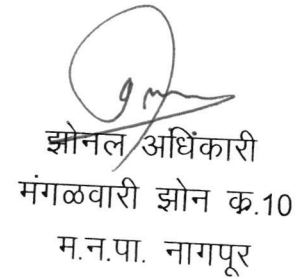 झोनल अधिंकारी
मंगळवारी झोन क्र.10
म.न.पा. नागपूर